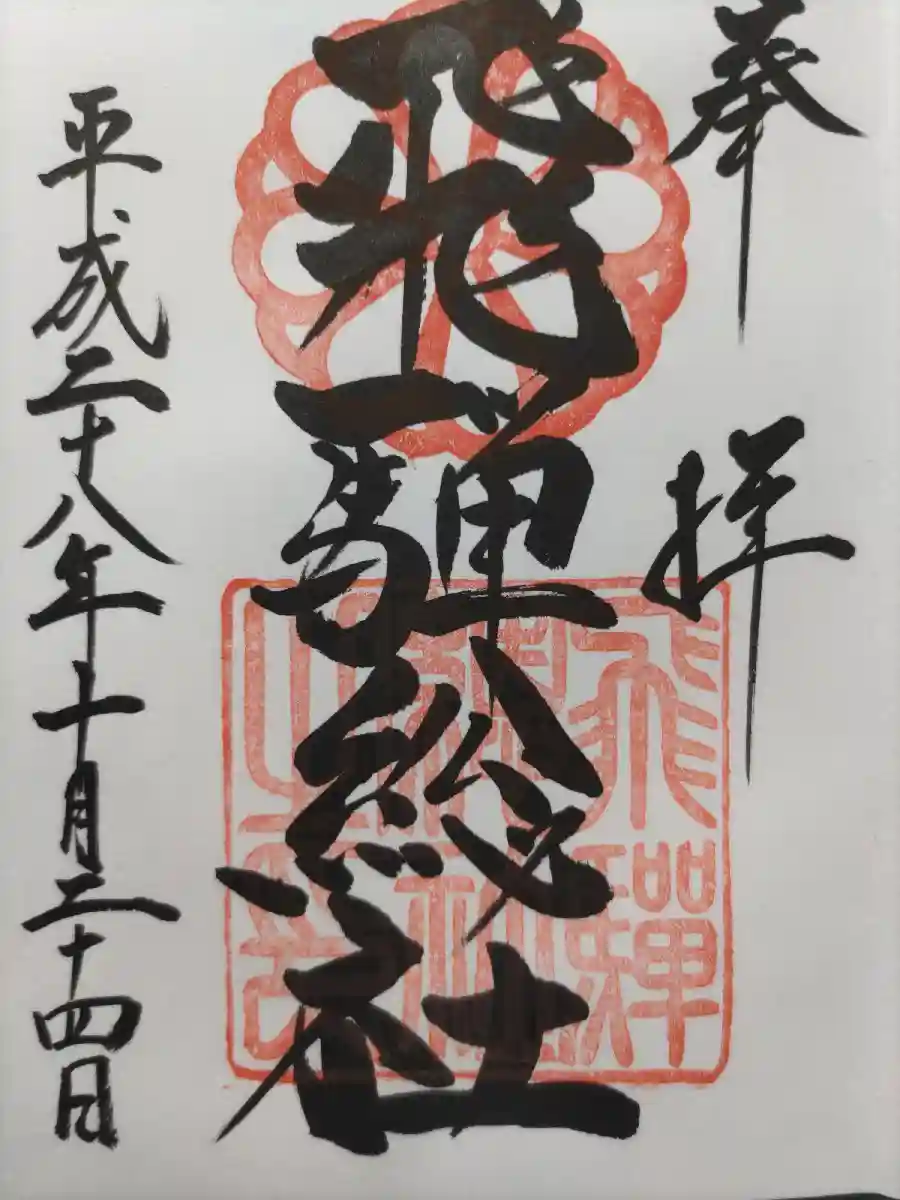 奉拝
飛驒総社
平成二十八年十月二十四日
飛驒
総社
之印